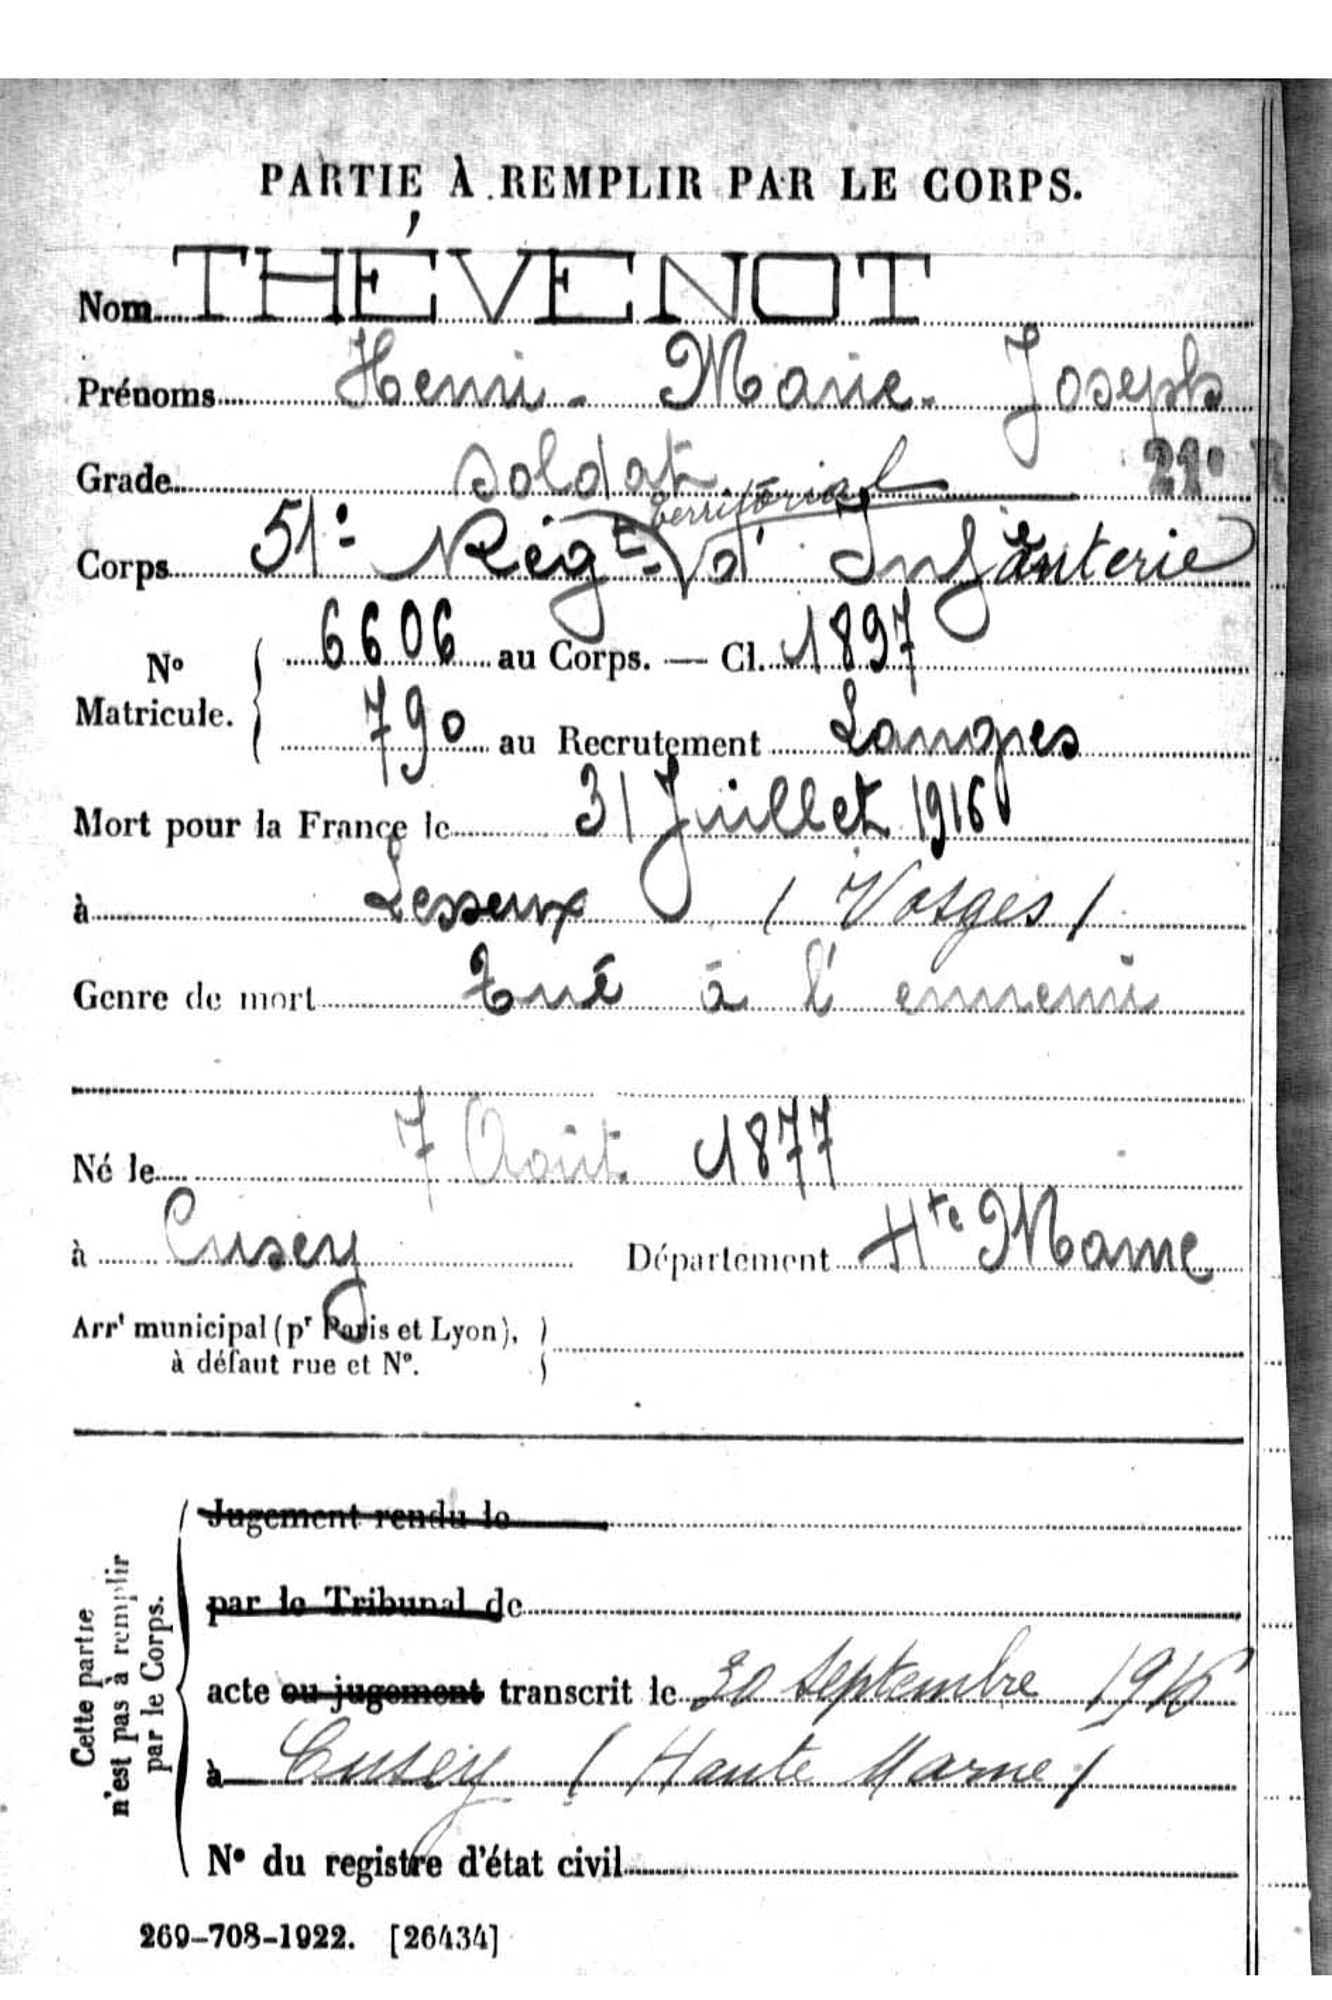 PARTIE À REMPLIR PAR LE CORPS.
Nom THÉVENOT
Prénoms Henri - Marie - Joseph
Grade soldat
21e R
territorial
Corps 51e Régt d'Infanterie
No Matricule. 6606 au Corps. — Cl. 1897
790 au Recrutement Langres
Mort pour la France le 31 Juillet 1916
à Lesseux (Vosges)
Genre de mort tué à l'ennemi
Né le 7 Août 1877
à Cusey Département Hte Marne
Arrt municipal (pr Paris et Lyon),
à défaut rue et No.
Cette partie
n'est pas à remplir
par le Corps.
Jugement rendu le
par le Tribunal de
acte ou jugement transcrit le 30 septembre 1916
à Cusey (Haute Marne)
No du registre d'état civil
269-708-1922. [26434]